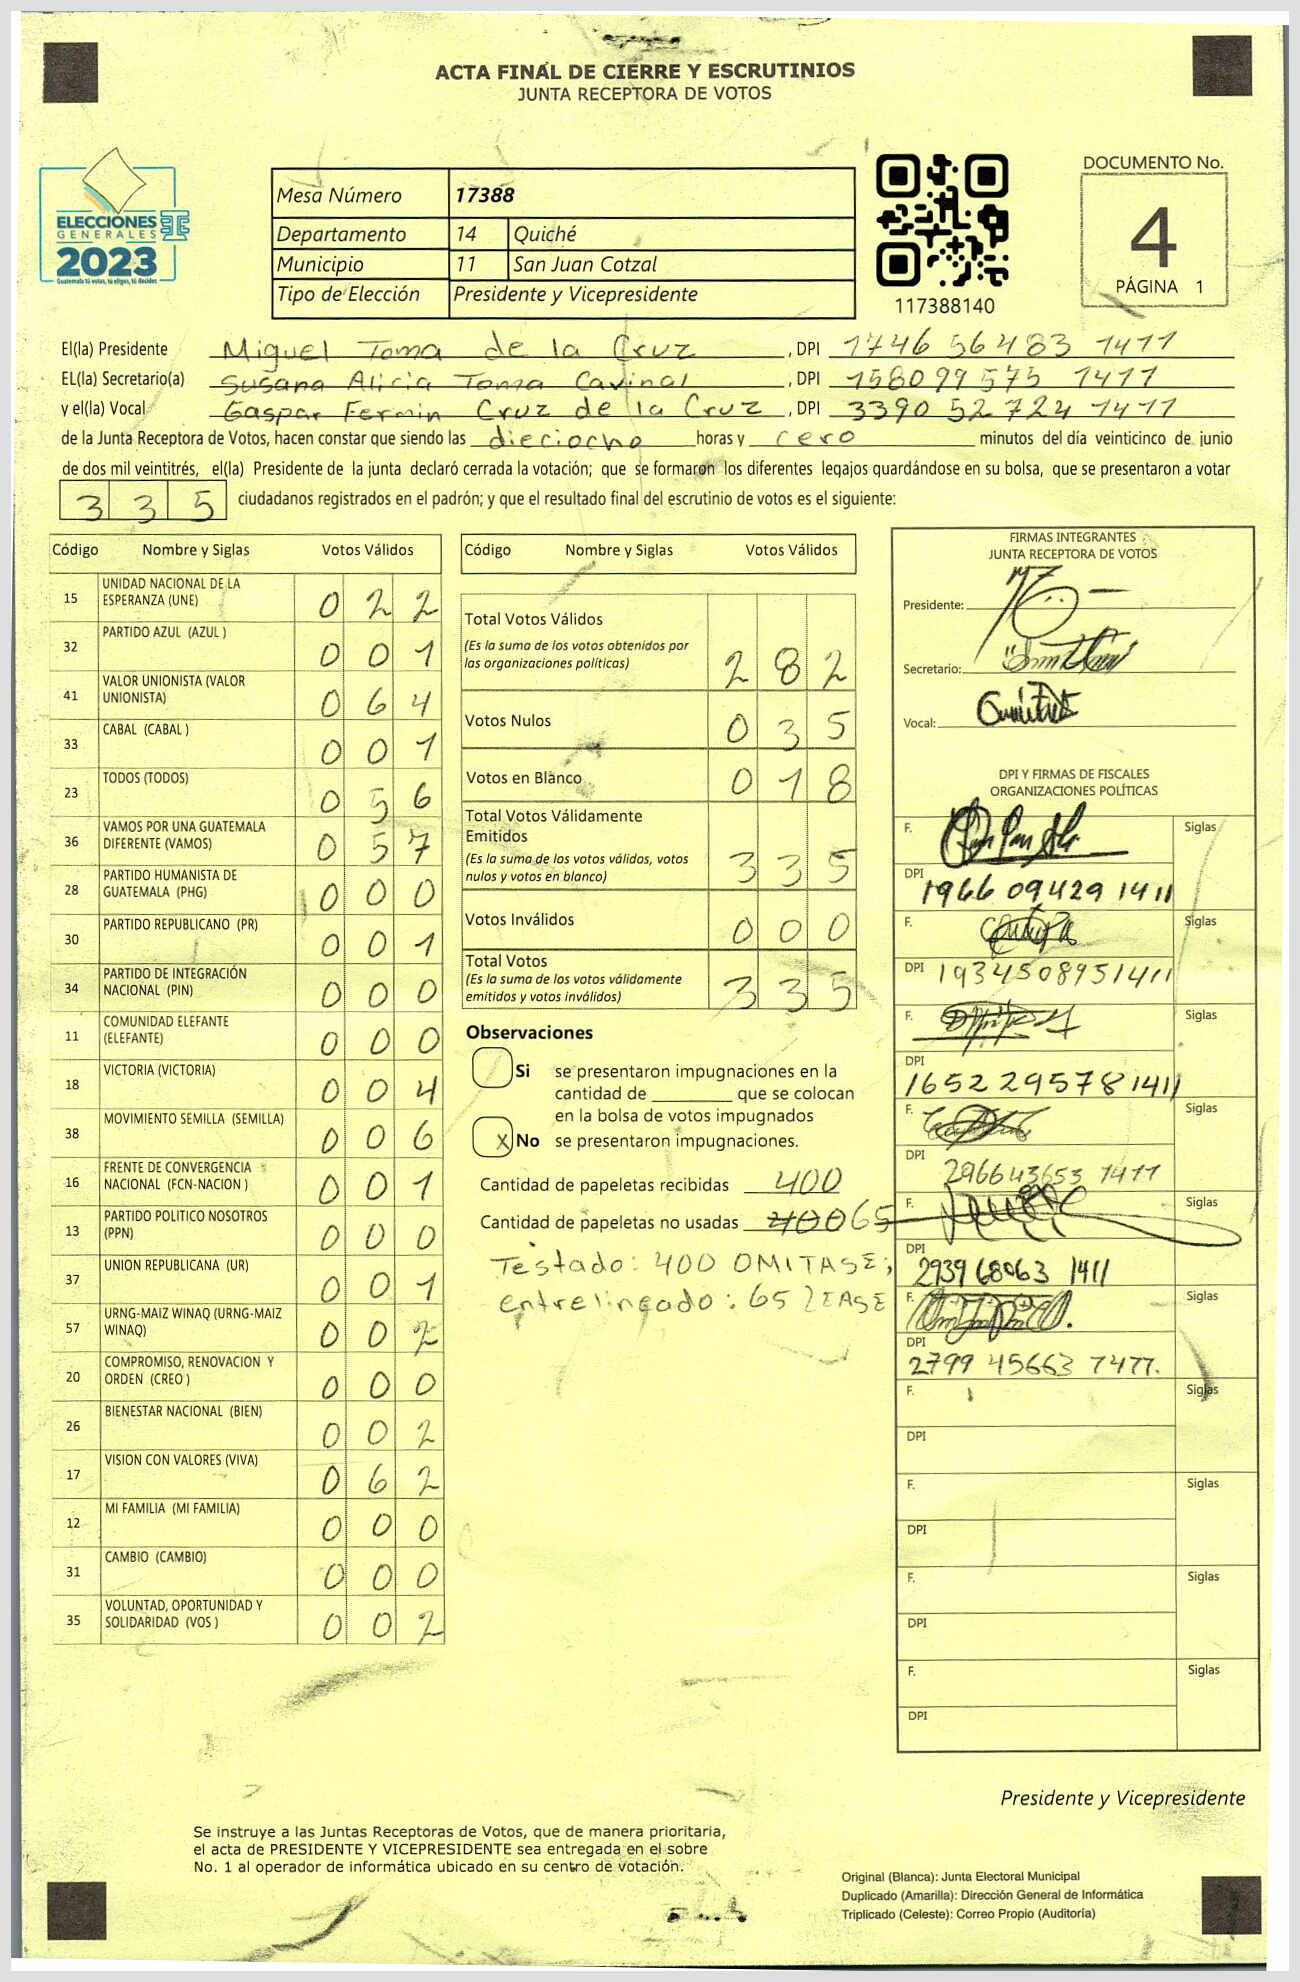 ACTA FINAL DE CIERRE Y ESCRUTINIOS
JUNTA RECEPTORA DE VOTOS
ELECCIONES
GENERALES
2023
Guatemala tú votas, tú eliges, tú decides
Mesa Número 17388
Departamento 14 Quiché
Municipio 11 San Juan Cotzal
Tipo de Elección Presidente y Vicepresidente
117388140
DOCUMENTO No.
4
PÁGINA 1
El(la) Presidente Miguel Toma de la Cruz, DPI 1746 56483 1411
EL(la) Secretario(a) Susana Alicia Toma Cavinal, DPI 158099575 1411
y el(la) Vocal Gaspar Fermin Cruz de la Cruz, DPI 3390 52724 1411
de la Junta Receptora de Votos, hacen constar que siendo las dieciocho horas y cero minutos del día veinticinco de junio
de dos mil veintitrés, el(la) Presidente de la junta declaró cerrada la votación; que se formaron los diferentes legajos guardándose en su bolsa, que se presentaron a votar
335 ciudadanos registrados en el padrón; y que el resultado final del escrutinio de votos es el siguiente:
Código Nombre y Siglas Votos Válidos
15 UNIDAD NACIONAL DE LA ESPERANZA (UNE) 022
32 PARTIDO AZUL (AZUL ) 001
41 VALOR UNIONISTA (VALOR UNIONISTA) 064
33 CABAL (CABAL ) 001
23 TODOS (TODOS) 056
36 VAMOS POR UNA GUATEMALA DIFERENTE (VAMOS) 057
28 PARTIDO HUMANISTA DE GUATEMALA (PHG) 000
30 PARTIDO REPUBLICANO (PR) 001
34 PARTIDO DE INTEGRACIÓN NACIONAL (PIN) 000
11 COMUNIDAD ELEFANTE (ELEFANTE) 000
18 VICTORIA (VICTORIA) 004
38 MOVIMIENTO SEMILLA (SEMILLA) 006
16 FRENTE DE CONVERGENCIA NACIONAL (FCN-NACION ) 001
13 PARTIDO POLITICO NOSOTROS (PPN) 000
37 UNION REPUBLICANA (UR) 001
57 URNG-MAIZ WINAQ (URNG-MAIZ WINAQ) 002
20 COMPROMISO, RENOVACION Y ORDEN (CREO ) 000
26 BIENESTAR NACIONAL (BIEN) 002
17 VISION CON VALORES (VIVA) 062
12 MI FAMILIA (MI FAMILIA) 000
31 CAMBIO (CAMBIO) 000
35 VOLUNTAD, OPORTUNIDAD Y SOLIDARIDAD (VOS ) 002
Código Nombre y Siglas Votos Válidos
Total Votos Válidos 282
(Es la suma de los votos obtenidos por
las organizaciones políticas)
Votos Nulos 035
Votos en Blanco 018
Total Votos Válidamente
Emitidos 335
(Es la suma de los votos válidos, votos
nulos y votos en blanco)
Votos Inválidos 000
Total Votos 335
(Es la suma de los votos válidamente
emitidos y votos inválidos)
Observaciones
Si se presentaron impugnaciones en la
cantidad de ________ que se colocan
en la bolsa de votos impugnados
x No se presentaron impugnaciones.
Cantidad de papeletas recibidas 400
Cantidad de papeletas no usadas 400 65
Testado: 400 OMITASE;
entrelineado: 65 LEASE
FIRMAS INTEGRANTES
JUNTA RECEPTORA DE VOTOS
Presidente:
Secretario:
Vocal:
DPI Y FIRMAS DE FISCALES
ORGANIZACIONES POLÍTICAS
F. Siglas
DPI 1966 09429 1411
F. Siglas
DPI 1934508951411
F. Siglas
DPI
1652 29578 1411
F. Siglas
DPI
296643653 1411
F. Siglas
DPI
2939 68063 1411
F. Siglas
DPI
2799 45663 1411.
F. Siglas
DPI
F. Siglas
DPI
F. Siglas
DPI
F. Siglas
DPI
Presidente y Vicepresidente
Se instruye a las Juntas Receptoras de Votos, que de manera prioritaria,
el acta de PRESIDENTE Y VICEPRESIDENTE sea entregada en el sobre
No. 1 al operador de informática ubicado en su centro de votación.
Original (Blanca): Junta Electoral Municipal
Duplicado (Amarilla): Dirección General de Informática
Triplicado (Celeste): Correo Propio (Auditoría)